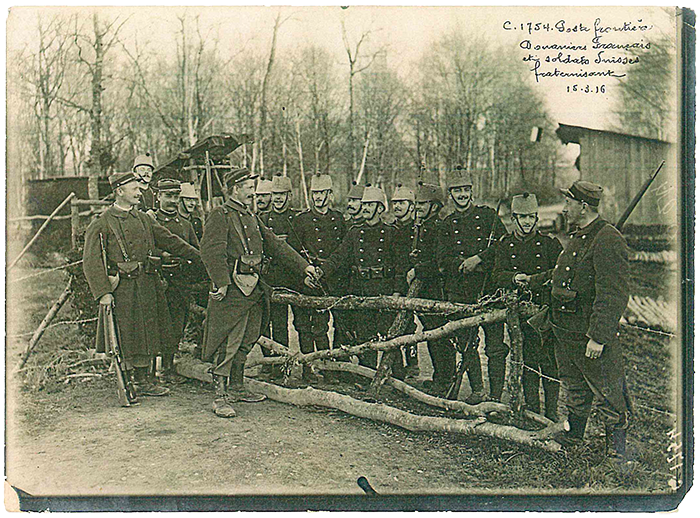 C. 1754. Poste frontière
Douaniers Français
et soldats Suisses
fraternisant
15.3.16